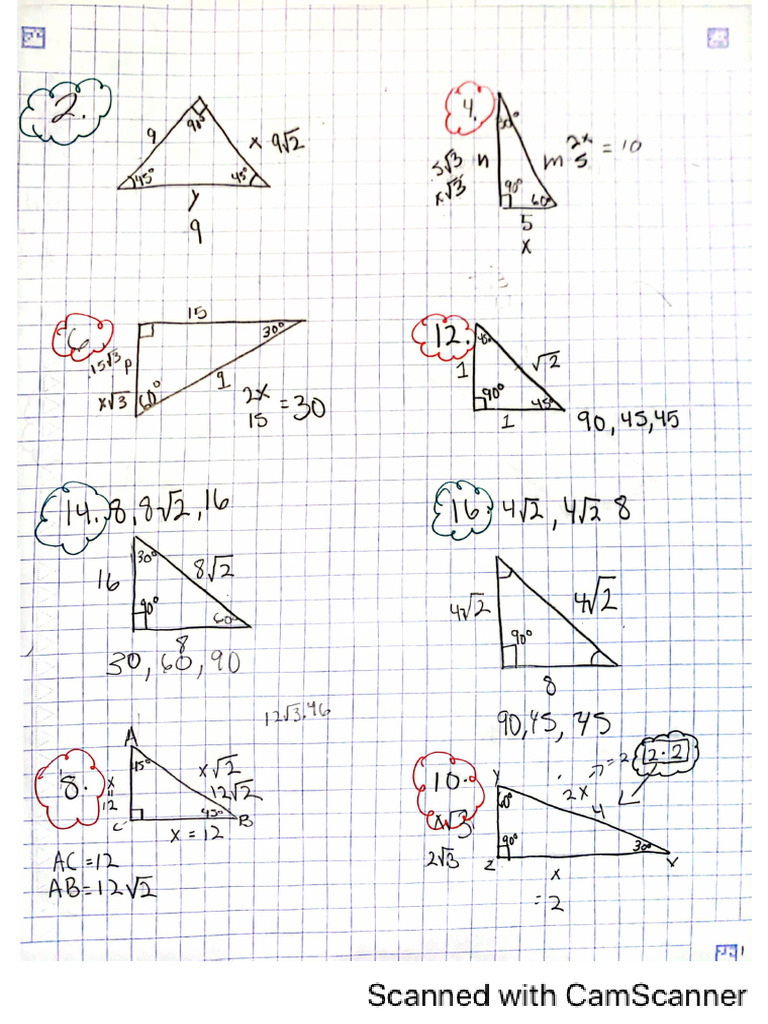 2.
90°
9
x 9√2
45°
45°
y
9
4.
30°
5√3 n
x√3
m 2x
5 = 10
90°
60°
5
x
6.
15
30°
15√3 p
x√3
60°
q
2x
15 = 30
12.
45°
1
√2
90°
45°
1
90, 45, 45
14. 8, 8√2, 16
30°
16
8√2
90°
60°
8
30, 60, 90
16. 4√2, 4√2 8
4√2
4√2
90°
8
90, 45, 45
12√3,
8.
A
45°
x
=
12
x√2
12√2
45°
C
B
x = 12
AC = 12
AB = 12√2
10.
Y
60°
x√3
2√3
= 2
2·2
2x
4
90°
30°
Z
X
x
= 2
Scanned with CamScanner